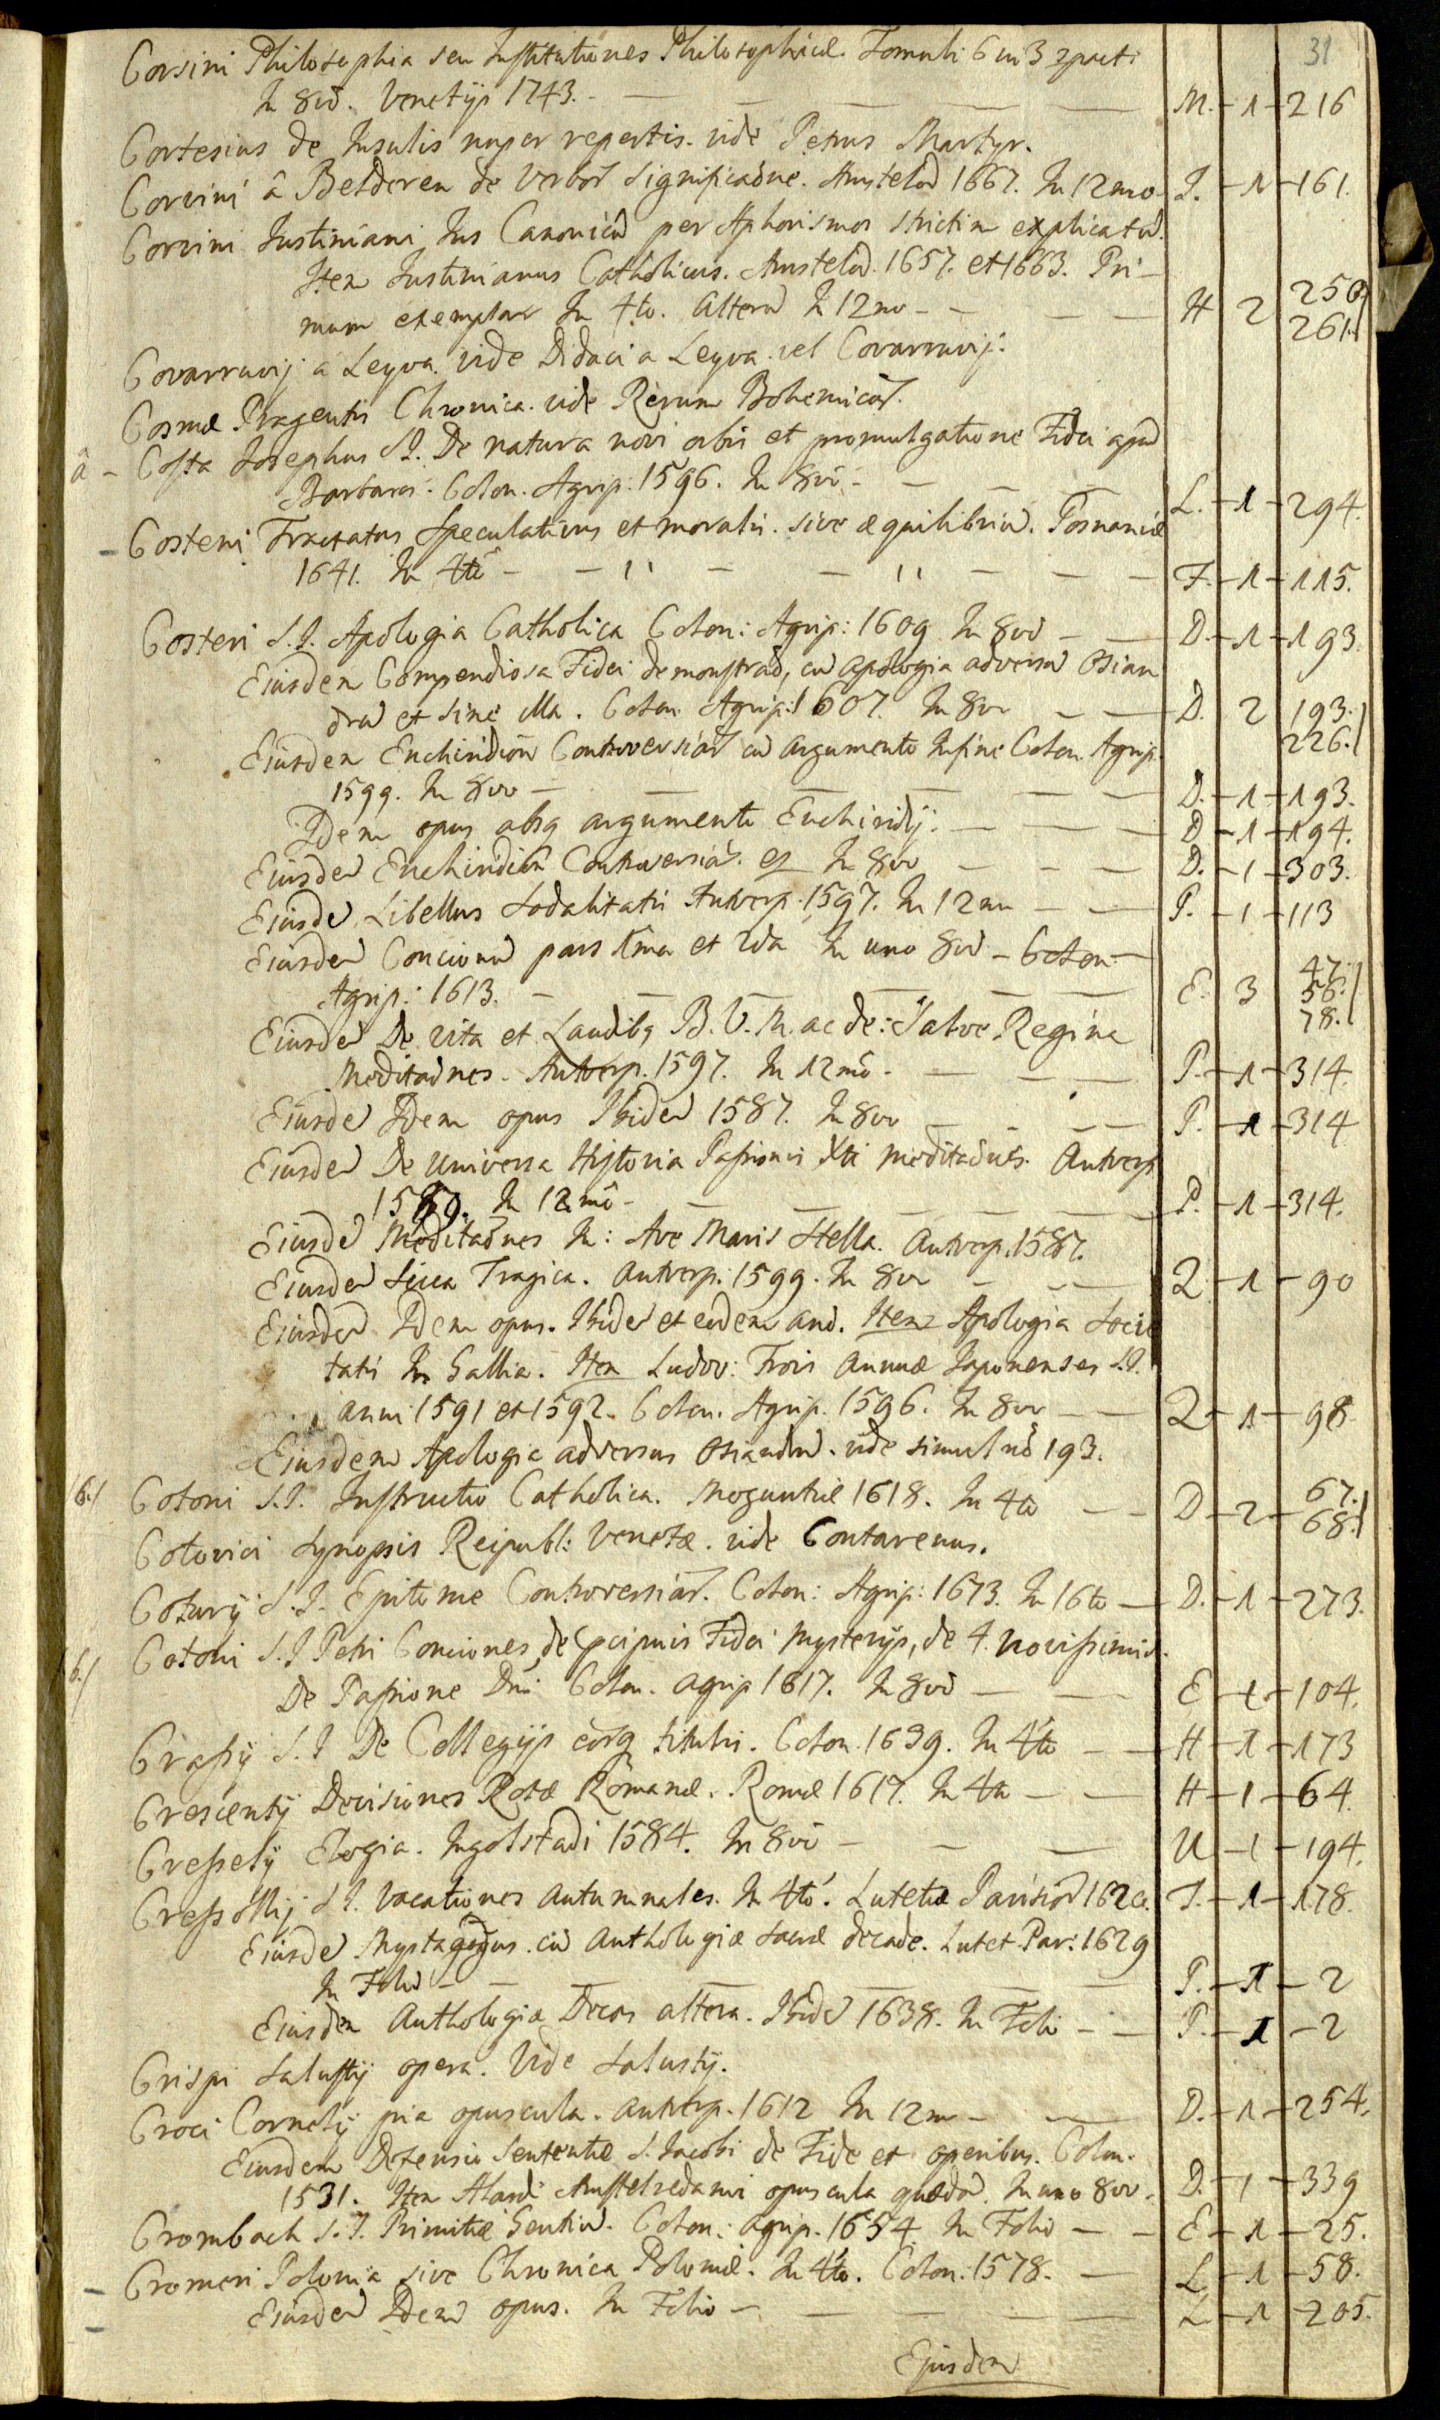 31
Corsini Philosophia seu Institutiones Philosophicæ. Tomuli 6 in 3
In 8vo. Venetijs 1743. - M. - 1 - 216
Cortesius de Insulis nuper repertis. vide Petrus Martyr.
Corvini â Belderen de Verbor Significaōne. Amstelod 1667. In 12mo J. - 1 - 161.
Corvini Justiniani Jus Canonicū per Aphorismos strictim explicatū.
Item Justinianus Catholicus. Amstelod. 1657. et 1663. Pri-
mum exemplar In 4to. alterū In 12mo - H 2 250. 261.
Covarruvij á Leyva. vide Didaci a Leyva. vel Covarruvij.
Cosmæ Pragensis Chronica. vide Rerum Bohemicar.
â - Costa Josephus S.I. De natura novi orbis et promulgatione Fidei apud
Barbaros. Colon. Agrip: 1596. In 8vo - L. - 1 - 294.
- Costeni Tractatus Speculativus et moralis. sive æquilibriū. Posnaniæ
1641. In 4to - F. - 1 - 115.
Costeri S.I. Apologia Catholica Colon: Agrip: 1609 In 8vo - D. - 1 - 193.
Eiusdem Compendiosa Fidei demonstraō, cū apologia adversū Osian
drū et sine illa. Colon Agrip: 1607. In 8vo D. 2 193. 226.
Eiusdem Enchiridion Controversiar cū argumento In fine Colon. Agrip.
1599. In 8vo - D. - 1 - 193.
Idem opus absq argumento Enchiridij. - D - 1 - 194.
Eiusdem Enchiridion Controversiar. In 8vo - D. - 1 - 303.
Eiusdē Libellus Sodalitatis Antverp. 1597. In 12mo - P. - 1 - 113
Eiusdem Concionū pars 1ma et 2da In uno 8vo - Colon.
Agrip: 1613. - E. 3 47. 56. 78.
Eiusdē De vita et Laudibq B.V.M. ac de: Salve Regina
Meditaōnes. Antverp. 1597. In 12mō. P. - 1 - 314.
Eiusdē Idem opus Ibidem 1587. In 8vo P. - 1 - 314
Eiusdē De Universa Historia Passionis Xti meditaōnes. Antverp
In 12mō - P. - 1 - 314.
Eiusdē Meditaōnes In: Ave Maris Stella. Antverp. 1587.
Eiusdem Sica Tragica. Antverp: 1599. In 8vo - Q - 1 - 90
Eiusdem Idem opus. Ibidē et eodem anō. Item Apologia Socie
tatis In Gallia. Item Ludov: Frois Annuæ Japonenses S.I.
anni 1591 et 1592. Colon. Agrip. 1596. In 8vo - Q - 1 - 98
Eiusdem Apologia adversus Osiandrū. vide simul nō 193.
/6./ Cotoni S.I. Instructio Catholica. Moguntiæ 1618. In 4to - D - 2 - 67. 68.
Cotovici Synopsis Reipubl: Venetæ. vide Contarenus.
Coturij S.I. Epitome Controversiar. Colon: Agrip: 1673. In 16to - D. - 1 - 273.
/6./ Cotoni S.I Petri Conciones, de pcipuis Fidei Mysterijs, de 4. novissimis.
De Passione Dni Colon. Agrip 1617. In 8vo - E - 1 - 104.
Crassij S.I De Collegijs corq titulis. Colon. 1639. In 4to - H - 1 - 173
Crescentij Decisiones Rotæ Romanæ. Romæ 1617. In 4to - H - 1 - 64.
Cressetij Elogia. Ingolstadi 1584. In 8vo - U - 1 - 194.
Cressollij S.I. Vacationes Autumnales. In 4to. Lutetiæ Parisior 1620. T. - 1 - 178.
Eiusdē Mystagogus. cū Anthologiæ Sacræ decade. Lutet Par: 1629
In Folio - P. - 1 - 2
Eiusdem Anthologia Decas altera. Ibidē 1638. In Folio - P. - 1 - 2
Crispi Salustij opera. Vide Salustij.
Croci Cornelij pia opuscula. Antverp. 1612 In 12mo - D. - 1 - 254.
Eiusdem Defensio Sententiæ S. Jacobi de Fide et operibus. Colon.
1531. Item Alardi Amstelredami opuscula quædā. In uno 8vo. D. - 1 - 339
Crombach S.I. Primitiæ Gentiū. Colon: Agrip. 1654 In Folio - E - 1 - 25.
- Cromeri Polonia sive Chronica Poloniæ. In 4to. Colon. 1578. - L - 1 - 58.
- Eiusdem Idem opus. In Folio - L - 1 - 205.
Ejusdem